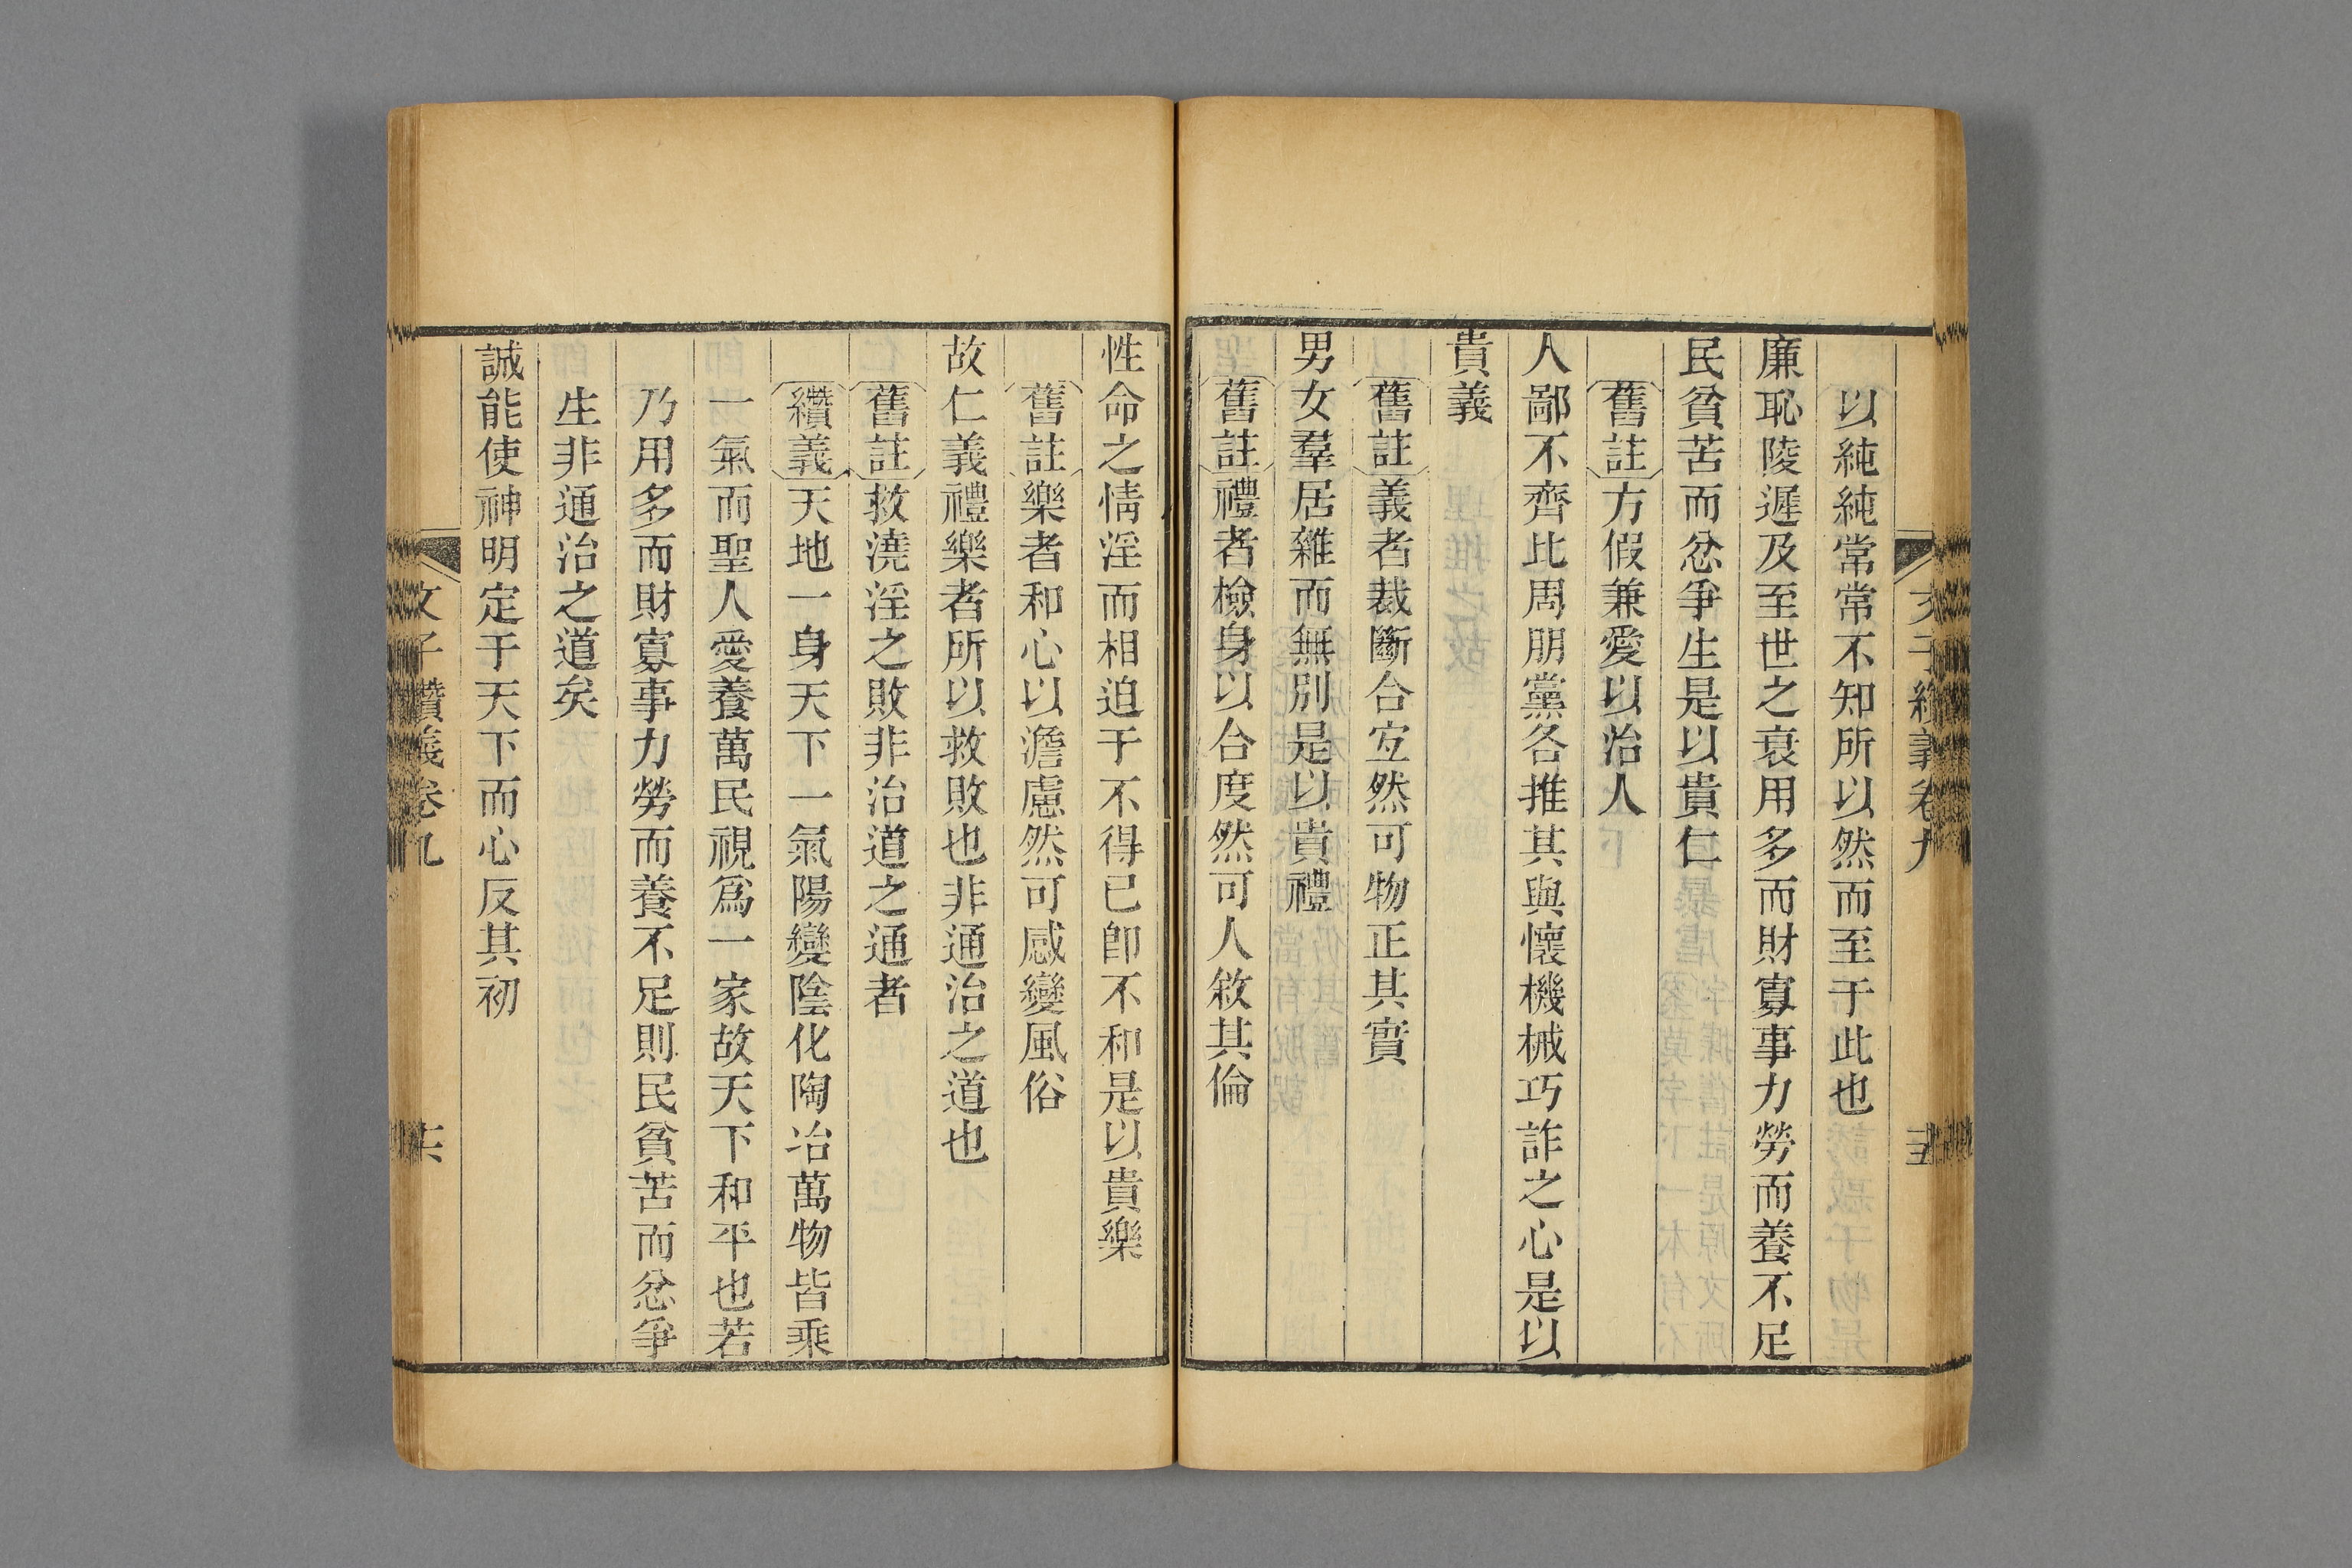 文子纘義卷九
十五
以純純常常不知所以然而至于此也
廉恥陵遲及至世之衰用多而財寡事力勞而養不足
民貧苦而忿爭生是以貴仁
舊註方假兼愛以治人
人鄙不齊比周朋黨各推其與懷機械巧詐之心是以
貴義
舊註義者裁斷合宐然可物正其實
男女羣居雜而無別是以貴禮
舊註禮者檢身以合度然可人敘其倫
性命之情淫而相迫于不得已卽不和是以貴樂
舊註樂者和心以澹慮然可感變風俗
故仁義禮樂者所以救敗也非通治之道也
舊註救澆淫之敗非治道之通者
纘義天地一身天下一氣陽變陰化陶冶萬物皆乘
一氣而聖人愛養萬民視爲一家故天下和平也若
乃用多而財寡事力勞而養不足則民貧苦而忿爭
生非通治之道矣
誠能使神明定于天下而心反其初
文子纘義卷九
十六